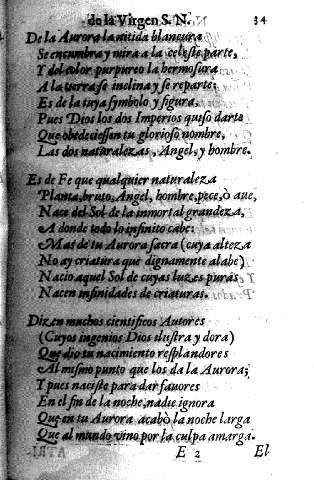 de la Virgen S. N. 34
De la Aurora la nitida blancura
Se encumbra y mira a la celeste parte,
Y del color purpureo la hermosura
A la tierra se inclina y se reparte:
Es de la tuya symbolo y figura,
Pues Dios los dos Imperios quiso darte
Que obedeciessen tu glorioso nombre,
Las dos naturalezas, Angel, y hombre.
Es de Fe que qualquier naturaleza
Planta, bruto, Angel, hombre, pece, ò aue,
Nace del Sol de la inmortal grandeza,
A donde todo lo infinito cabe:
Mas de tu Aurora sacra (cuya alteza
No ay criatura que dignamente alabe)
Nacio aquel Sol de cuyas luzes puras
Nacen infinidades de criaturas.
Dizen muchos cientificos Autores
(Cuyos ingenios Dios ilustra y dora)
Que dio tu nacimiento resplandores
Al mismo punto que los da la Aurora;
Y pues naciste para dar fauores
En el fin de la noche, nadie ignora
Que en tu Aurora acabò la noche larga
Que al mundo vino por la culpa amarga.
E 2 El